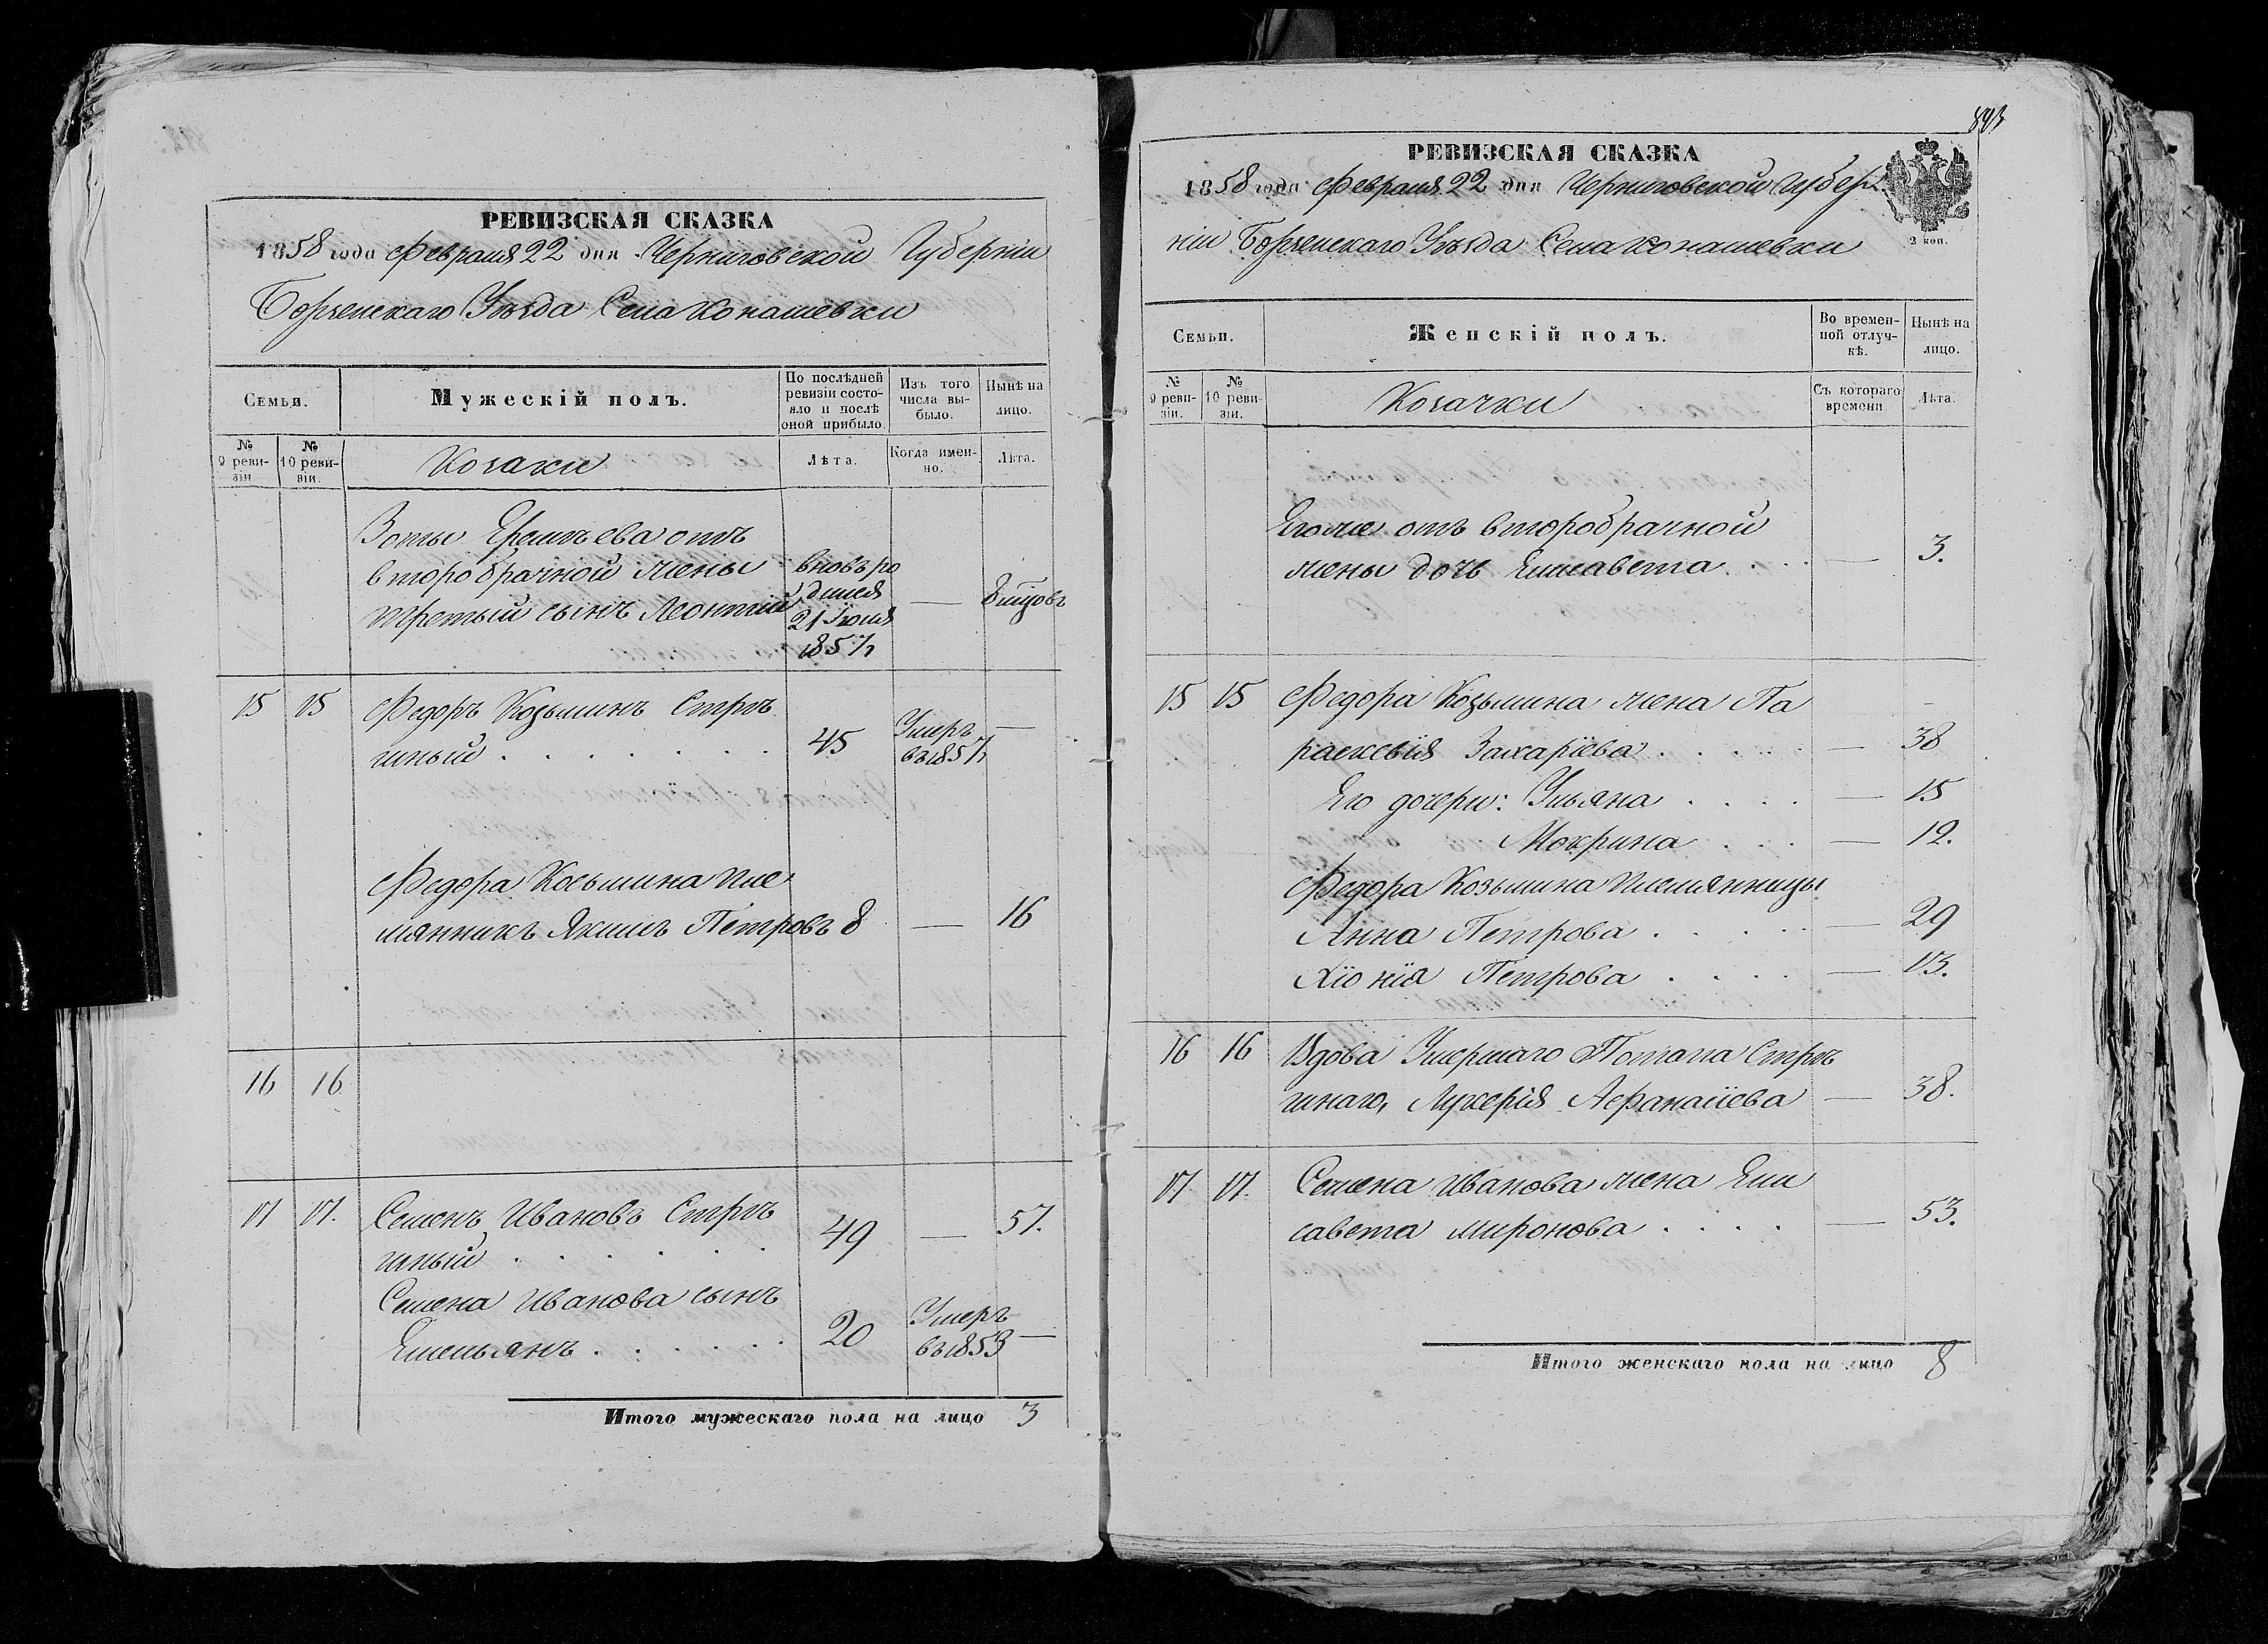 РЕВИЗСКАЯ СКАЗКА
1858 года Февраля 22 дня Черниговской Губерніи
Борзенскаго Уѣзда Села Конашевки
Семьи.
Мужескій полъ.
По послѣдней ревизіи состояло и послѣ оной прибыло.
Изъ того числа выбыло.
Нынѣ на лицо.
№ 9 ревизіи.
№ 10 ревизіи.
Козаки
Лѣта.
Когда именно.
Лѣта.
Зоты Еремѣева отъ
второбрачной жены вновь ро
третьий сынъ Леонтій дился — 8 мцовъ
21 Іюня
1857
15 15 Федоръ Козьминъ Стрѣ
шный . . . . . . . 45 Умеръ въ 1857 —
Федора Косьмина пле
мянникъ Яким Петровъ 8 — 16
16 16
17 17. Семенъ Ивановъ Стрѣ
шный . . . . . . 49 — 57.
Семена Иванова сынъ
Емельянъ . . . . . . 20 Умеръ въ 1853 —
Итого мужескаго пола на лицо 3
843
РЕВИЗСКАЯ СКАЗКА
1858 года Февраля 22 дня Черниговской Губер
ніи Борзенскаго Уѣзда Села Конашевки
2 коп.
Семьи.
Женскій полъ.
Во временной отлучкѣ.
Нынѣ на лицо.
№ 9 ревизіи.
№ 10 ревизіи.
Козачки
Съ котораго времени
Лѣта.
Его же отъ второбрачной
жены дочь Елисавета . . . — 3.
15 15 Федора Козьмина жена Па
раскевія Захаріева . . . . . — 38
Его дочери: Ульяна . . . . — 15
Мокрина . . . — 12.
Федора Козьмина племянницы
Анна Петрова . . . . . — 29
Хіонія Петрова . . . . — 13.
16 16 Вдова Умершаго Потапа Стрѣ
шнаго, Лукерія Афанасіева — 38.
17 17. Семена Иванова жена Ели
савета Миронова . . . . — 53.
Итого женскаго пола на лицо 8